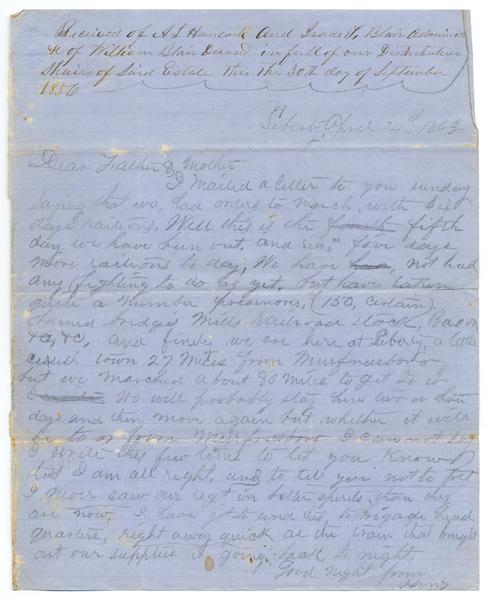 Received of A S Hancock and Isaac T. Blair Admin
of William Blair Deceased in full of our Distributive
Shairs of Said Estate this the 30th day of September
1856
Liberty April 24th 1863
Dear Father & Mother
I Mailed a letter to you sunday
saying that we had orders to march with six
days raitions, Well this is the fourth fifth
day we have been out, and four days
more raitions to day, We have not had
any fighting to do as yet, but have taken
quite a number prisonors, (150, certain)
burned bridges Mills Railroad stock, Bacon
&c, &c, and finely we are here at Liberty, a little
town 27 Miles from Murfreesboro
but we marched about 80 Miles to get to it
We will probably stay here two or three
days and then move again but whether it will
be to or from Murfresboro I can not say
I write thes few lines to let you know
that I am all right, and to tell you not to fret
I never saw our regt in better spirits than they
are now, I have got to send this to brigade head
quarters, right away quick as the train that brought
out our supplies is going back to night,
Good night from